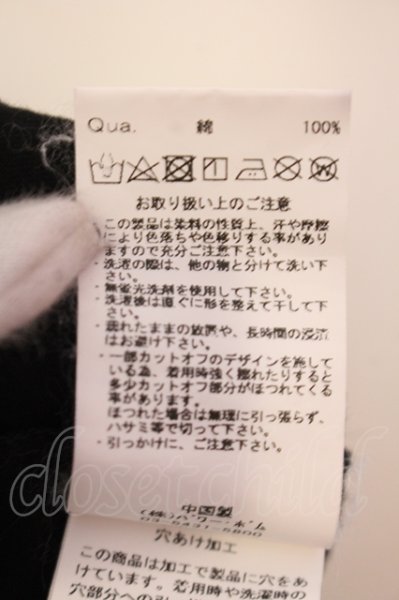 Qua. 綿 100%
お取り扱い上のご注意
・この製品は染料の性質上、汗や摩擦
により色落ちや色移りする事があり
ますので充分ご注意下さい。
・洗濯の際は、他の物と分けて洗い下
さい。
・無蛍光洗剤を使用して下さい。
・洗濯後は直ぐに形を整えて干して下
さい。
・濡れたままの放置や、長時間の浸漬
はお避け下さい。
・一部カットオフのデザインを施して
いる為、着用時強く擦れたりすると
多少カットオフ部分がほつれてくる
事があります。
ほつれた場合は無理に引っ張らず、
ハサミ等で切って下さい。
・引っかけに、ご注意下さい。
中国製
(株)パワー・ボム
03-5431-5800
穴あけ加工
この商品は加工で製品に穴をあ
けています。着用時や洗濯時の
穴部分への引
closet child